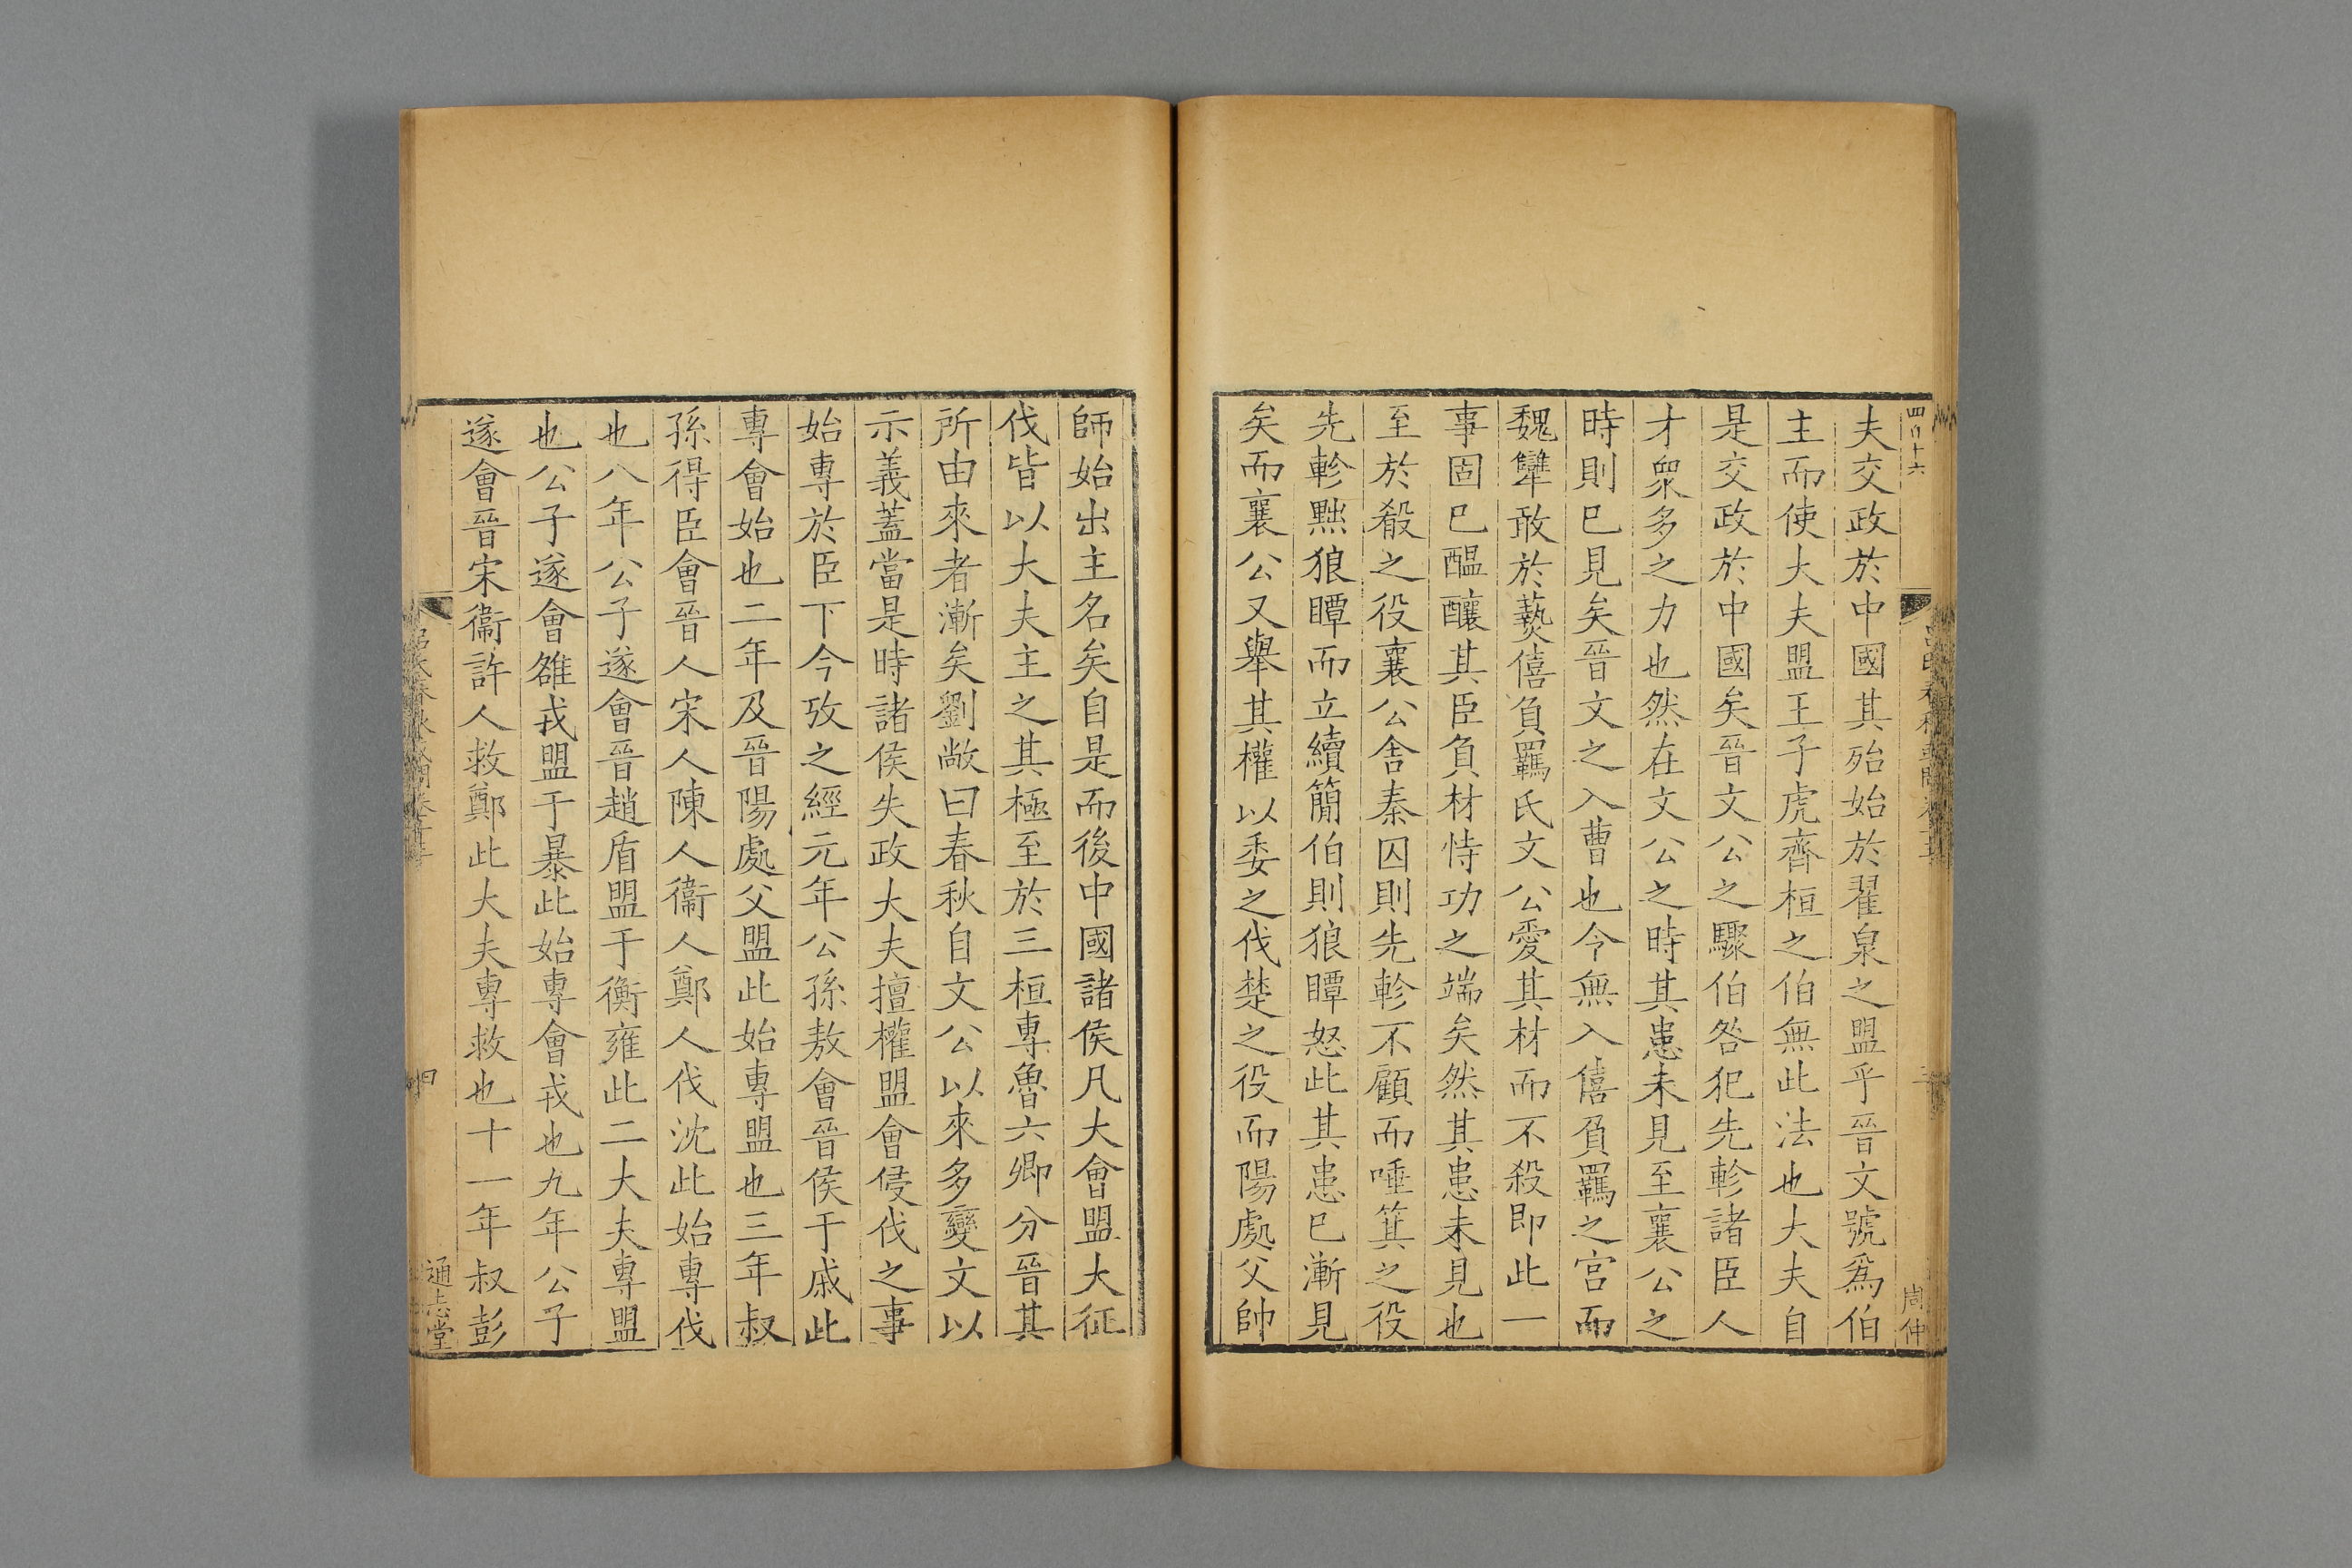 四百十六
夫交政於中國其殆始於翟泉之盟乎晉文號爲伯
主而使大夫盟王子虎齊桓之伯無此法也大夫自
是交政於中國矣晉文公之驟伯咎犯先軫諸臣人
才衆多之力也然在文公之時其患未見至襄公之
時則巳見矣晉文之入曹也令無入僖負羈之宮而
魏犨敢於爇僖負羈氏文公愛其材而不殺即此一
事固巳醞釀其臣負材恃功之端矣然其患未見也
至於殽之役襄公舍秦囚則先軫不顧而唾箕之役
先軫黜狼瞫而立續簡伯則狼瞫怒此其患巳漸見
矣而襄公又舉其權以委之伐楚之役而陽處父帥
周仲
師始出主名矣自是而後中國諸侯凡大會盟大征
伐皆以大夫主之其極至於三桓專魯六卿分晉其
所由來者漸矣劉敞曰春秋自文公以來多變文以
示義蓋當是時諸侯失政大夫擅權盟會侵伐之事
始專於臣下今攷之經元年公孫敖會晉侯于戚此
專會始也二年及晉陽處父盟此始專盟也三年叔
孫得臣會晉人宋人陳人衞人鄭人伐沈此始專伐
也八年公子遂會晉趙盾盟于衡雍此二大夫專盟
也公子遂會雒戎盟于暴此始專會戎也九年公子
遂會晉宋衞許人救鄭此大夫專救也十一年叔彭
通志堂